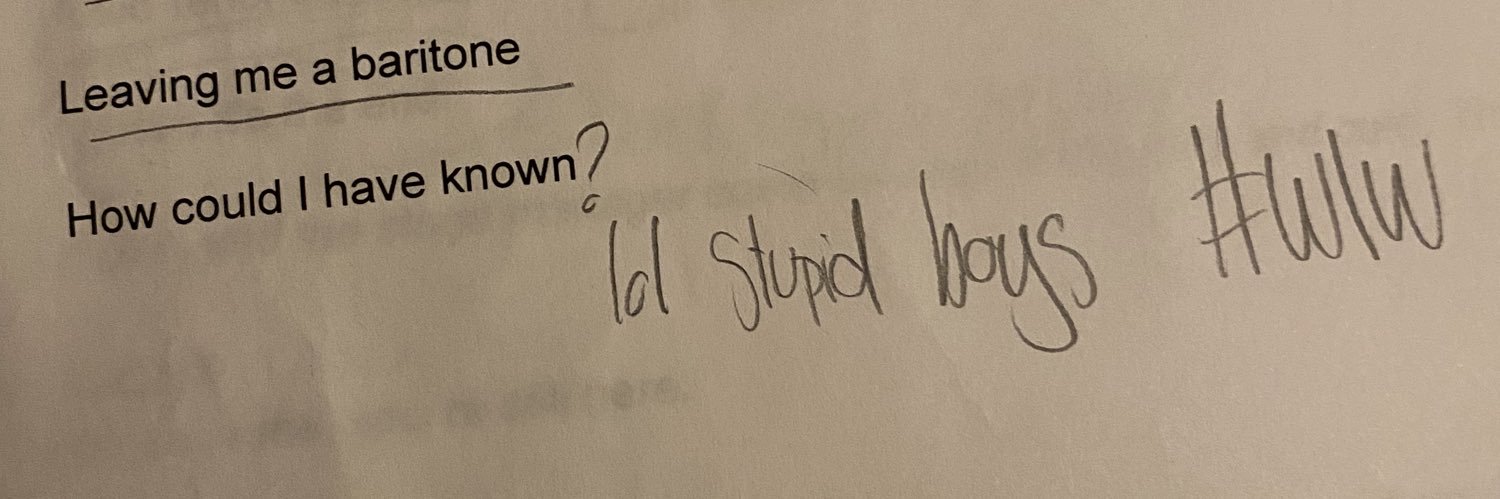 Leaving me a baritone
How could I have known?
lol stupid boys #wlw